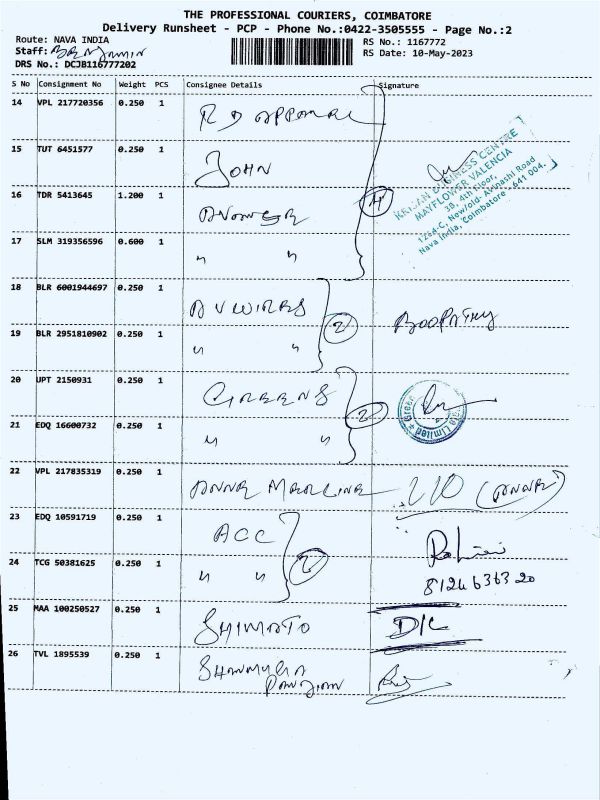 THE PROFESSIONAL COURIERS, COIMBATORE
Delivery Runsheet - PCP - Phone No.:0422-3505555 - Page No.:2
Route: NAVA INDIA RS No.: 1167772
Staff: RS Date: 10-May-2023
DRS No.: DCJB116777202
S No Consignment No Weight PCS Consignee Details Signature
14 VPL 217720356 0.250 1 R D APPAREL
15 TUT 6451577 0.250 1 JOHN
16 TDR 5413645 1.200 1
17 SLM 319356596 0.600 1 " " 4
KRISAN BUSINESS CENTRE
MAYFLOWER VALENCIA
3B, 4th Floor,
1264-C, New/old- Avinashi Road
Nava India, Coimbatore - 641 004.
18 BLR 6001944697 0.250 1 2 BOOPATHY
19 BLR 2951810902 0.250 1 " "
20 UPT 2150931 0.250 1 GREENS 2
21 EDQ 16600732 0.250 1 " "
22 VPL 217835319 0.250 1 ANNA
23 EDQ 10591719 0.250 1 ACC
24 TCG 50381625 0.250 1 " " 2
8124636320
25 MAA 100250527 0.250 1 SHIMATO D/L
26 TVL 1895539 0.250 1 SHANMUGA
PANDIAN